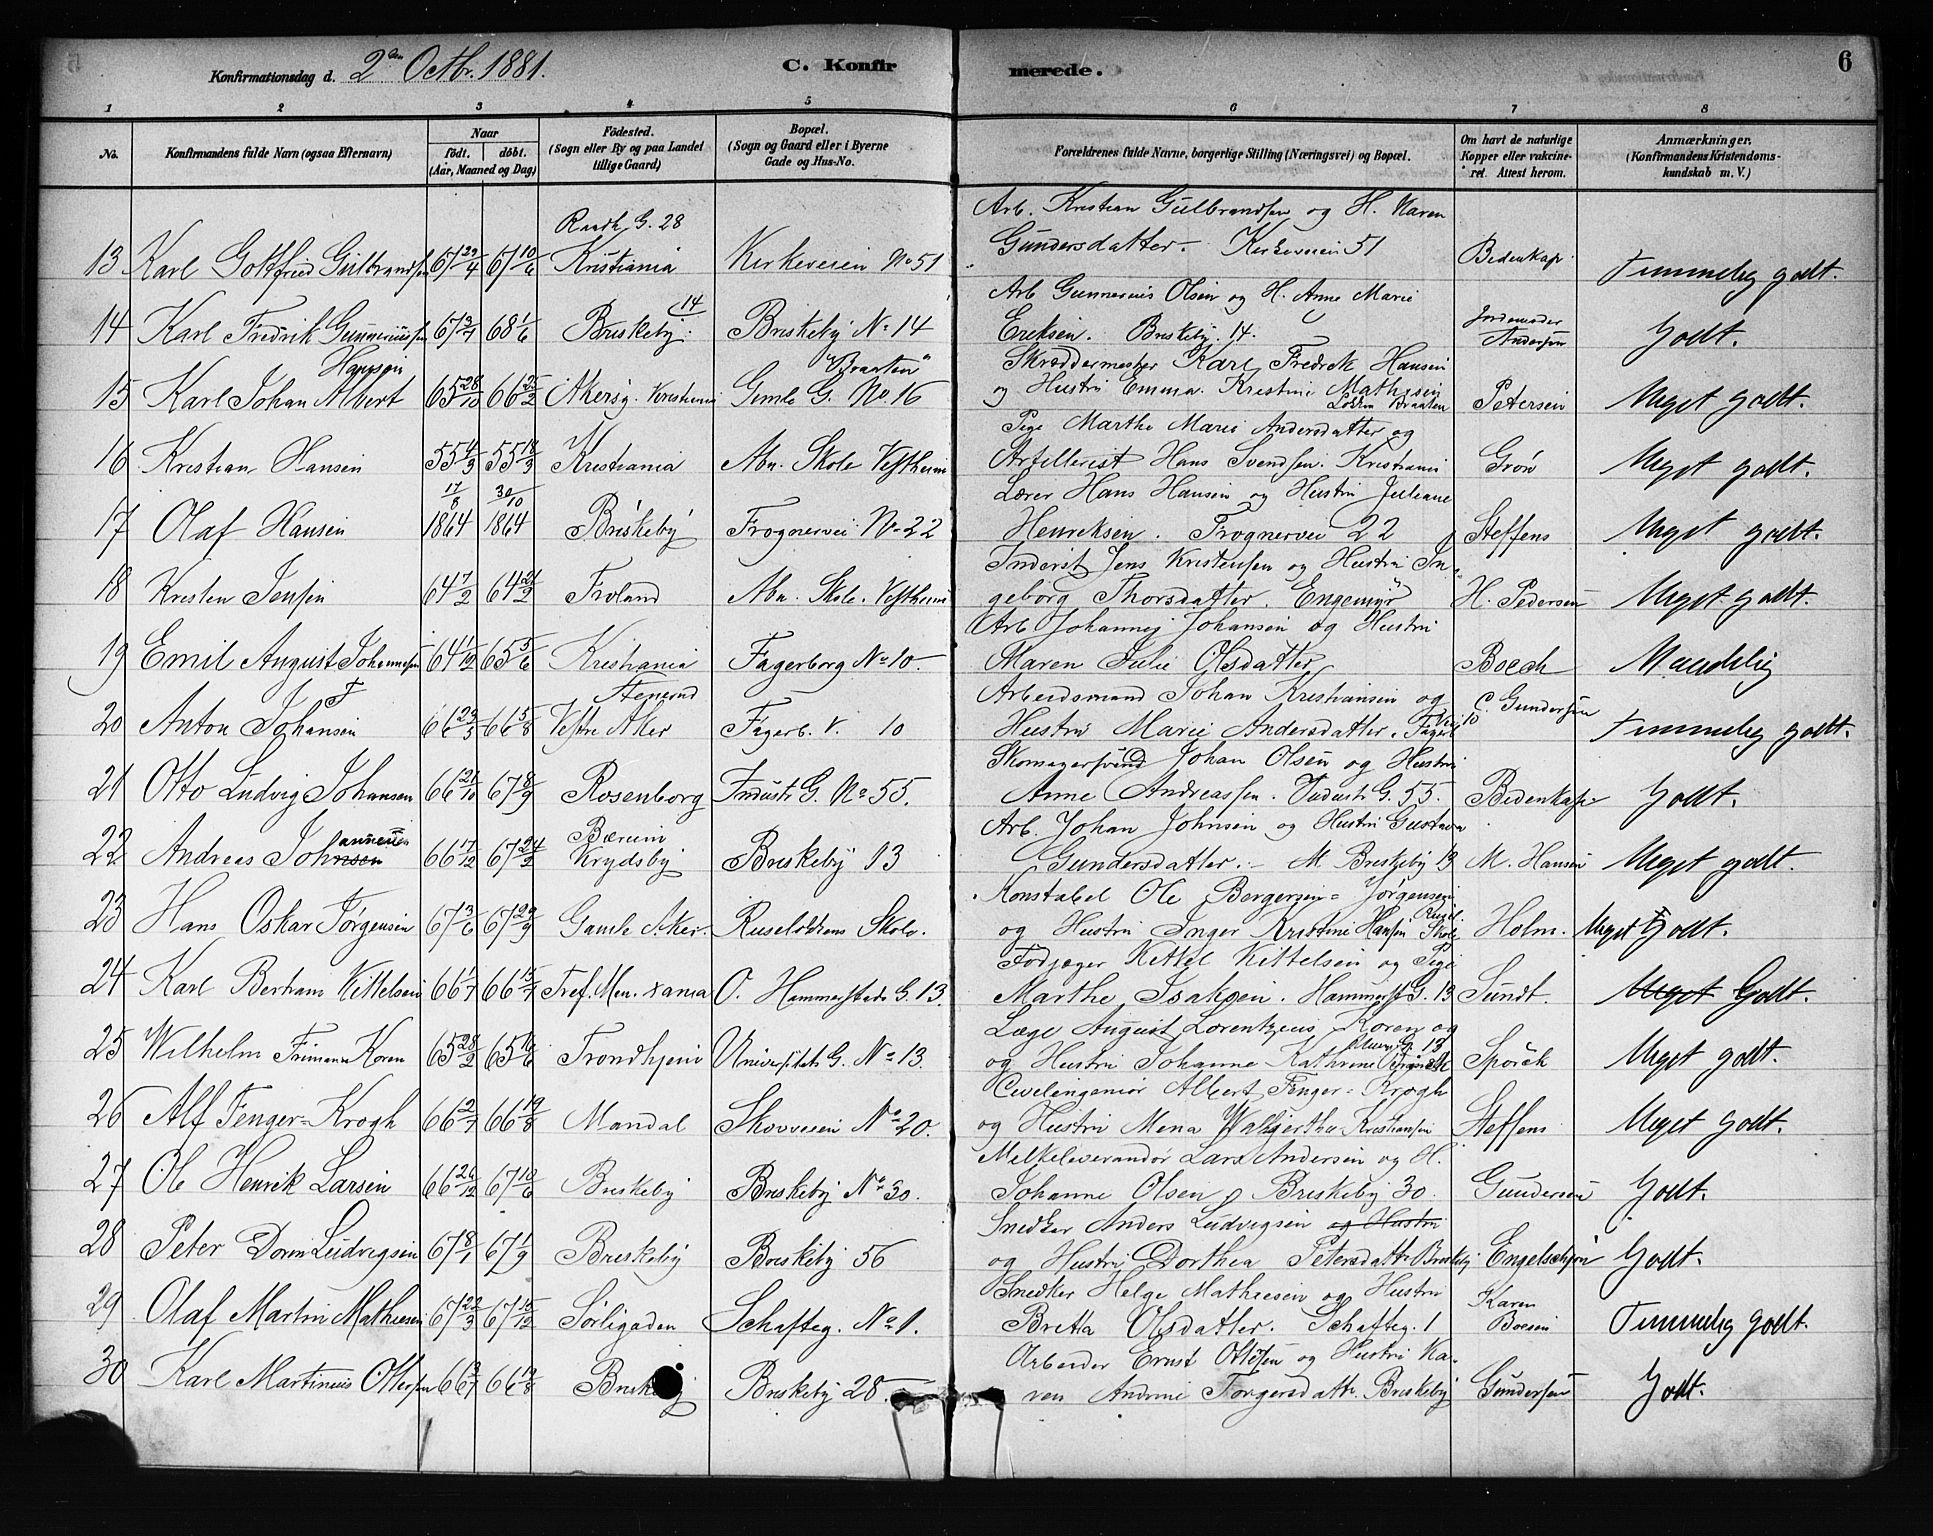 Konfirmationsdag d. 2den Octbr. 1881.
C. Konfirmerede.
6
1 2 3 4 5 6 7 8
No.
Konfirmandens fulde Navn (ogsaa Efternavn)
Naar
födt. döbt.
(Aar, Maaned og Dag)
Födested.
(Sogn eller By og paa Landet
tillige Gaard)
Bopæl.
(Sogn og Gaard eller i Byerne
Gade og Hus-No.
Forældrenes fulde Navne, borgerlige Stilling (Næringsvei) og Bopæl.
Om havt de naturlige
Kopper eller vakcine-
ret. Attest herom.
Anmærkninger.
(Konfirmandens Kristendoms-
kundskab m. V.)
Raadh. G. 28
Arb. Kristian Gulbrandsen og H. Karen
13 Karl Gottfried Gulbrandsen 67 29/4 67 10/6 Kristiania Kirkeveien No 51 Gundersdatter. Kirkeveien 51 Bedenkap Temmelig godt.
14
Arb Gunnerius Olsen og H. Anne Marie
14 Karl Fredrik Gunneriussen 67 13/7 68 1/6 Briskeby. Briskeby No 14 Eriksen. Briskeby. 14. Jordemoder Andersen Godt.
Hansen "Braaten" Skræddermester Karl Fredrik Hansen
15 Karl Johan Albert 65 28/10 66 25/2 Akersg. Kristiania Gimle G. No 16 og Hustru Emma Kristine Mathisen Løkken Braaten Petersen Meget godt.
Pige Marthe Marie Andersdatter og
16 Kristian Hansen 55 4/3 55 18/3 Kristiania Abn. Skole Vestheim Artillerist Hans Svendsen. Kristiania Grøn Meget godt.
17/8 30/10 Lærer Hans Hansen og Hustru Juliane
17 Olaf Hansen 1864 1864 Briskeby Frognervei No 22 Henriksen. Frognervei 22 Steffens Meget godt.
Inderst Jens Kristensen og Hustru In-
18 Kristen Jensen 64 7/2 64 21/2 Froland Abn. Skole. Vestheim geborg Thorsdatter. Engemyr H. Pedersen Meget godt.
Arb Johannes Johansen og Hustru
19 Emil August Johannesen 64 1/12 65 5/6 Kristiania Fagerborg No 10. Maren Julie Olsdatter Boeck Maadelig
Stenerud Arbeidsmand Johan Kristiansen og
20 Anton Johansen 66 23/3 66 5/8 Vestre Aker Fagerb. V. 10 Hustru Marie Andersdatter. Fagerb. 10 C. Gundersen Temmelig godt.
Skomagersvend Johan Olsen og Hustru
21 Otto Ludvig Johansen 66 21/10 67 8/9 Rosenborg Industri G. No 55. Anne Andreassen. Industri G. 55. Bedenkap Godt.
Bærum Arb. Johan Johnsen og Hustru Gustava
22 Andreas Johannesen 66 17/12 67 24/2 Krydsby Briskeby 13 Gundersdatter. M. Briskeby 13 M. Hansen Meget godt
Konstabel Ole Bergersen = Jørgensen
23 Hans Oskar Jørgensen 67 3/6 67 29/9 Gamle Aker. Ruseløkkens Skole. og Hustru Inger Kristine Hansen Rusel. Skole Holm. Meget Godt.
Fodjæger Kittel Kittelsen og Pige
24 Karl Bertram Kittelsen 66 1/7 66 15/7 Tref. Men. Xania O. Hammerstads G. 13. Marthe Isaksen. Hammerst G. 13 Sundt. Meget Godt.
Læge August Lorentzius Koren og
25 Wilhelm Frimann Koren 65 28/2 65 16/6 Trondhjem Universitets G. No 13. og Hustru Johanne Kathrine Sporck Meget godt.
Civilingeniør Albert Fenger-Krogh
26 Alf Fenger-Krogh 66 2/7 66 19/8 Mandal Skovveien No 20. og Hustru Mena Kristiansen Steffens Meget godt.
Melkeleverandør Lars Andersen og H.
27 Ole Henrik Larsen 66 26/12 67 10/6 Briskeby Briskeby No 30. Johanne Olsen Briskeby 30. Gundersen Godt.
Snedker Anders Ludvigsen og Hustru
28 Peter Dorin Ludvigsen 67 8/1 67 1/9 Briskeby Briskeby 56 og Hustru Dorthea Petersdatt. Briskeby Engelschjøn Godt.
Snedker Helge Mathiesen og Hustru
29 Olaf Martin Mathiesen 67 22/3 67 15/12 Sørligaden Schafteg. No 1. Britta Olsdatter. Schafteg. 1 Karen Boesen Temmelig godt.
Arbeider Ernst Ottesen og Hustru Ka-
30 Karl Martinius Ottersen 66 3/7 66 19/8 Briskeby Briskeby 28 ren Andrine Torgersdatt. Briskeby Gundersen Godt.